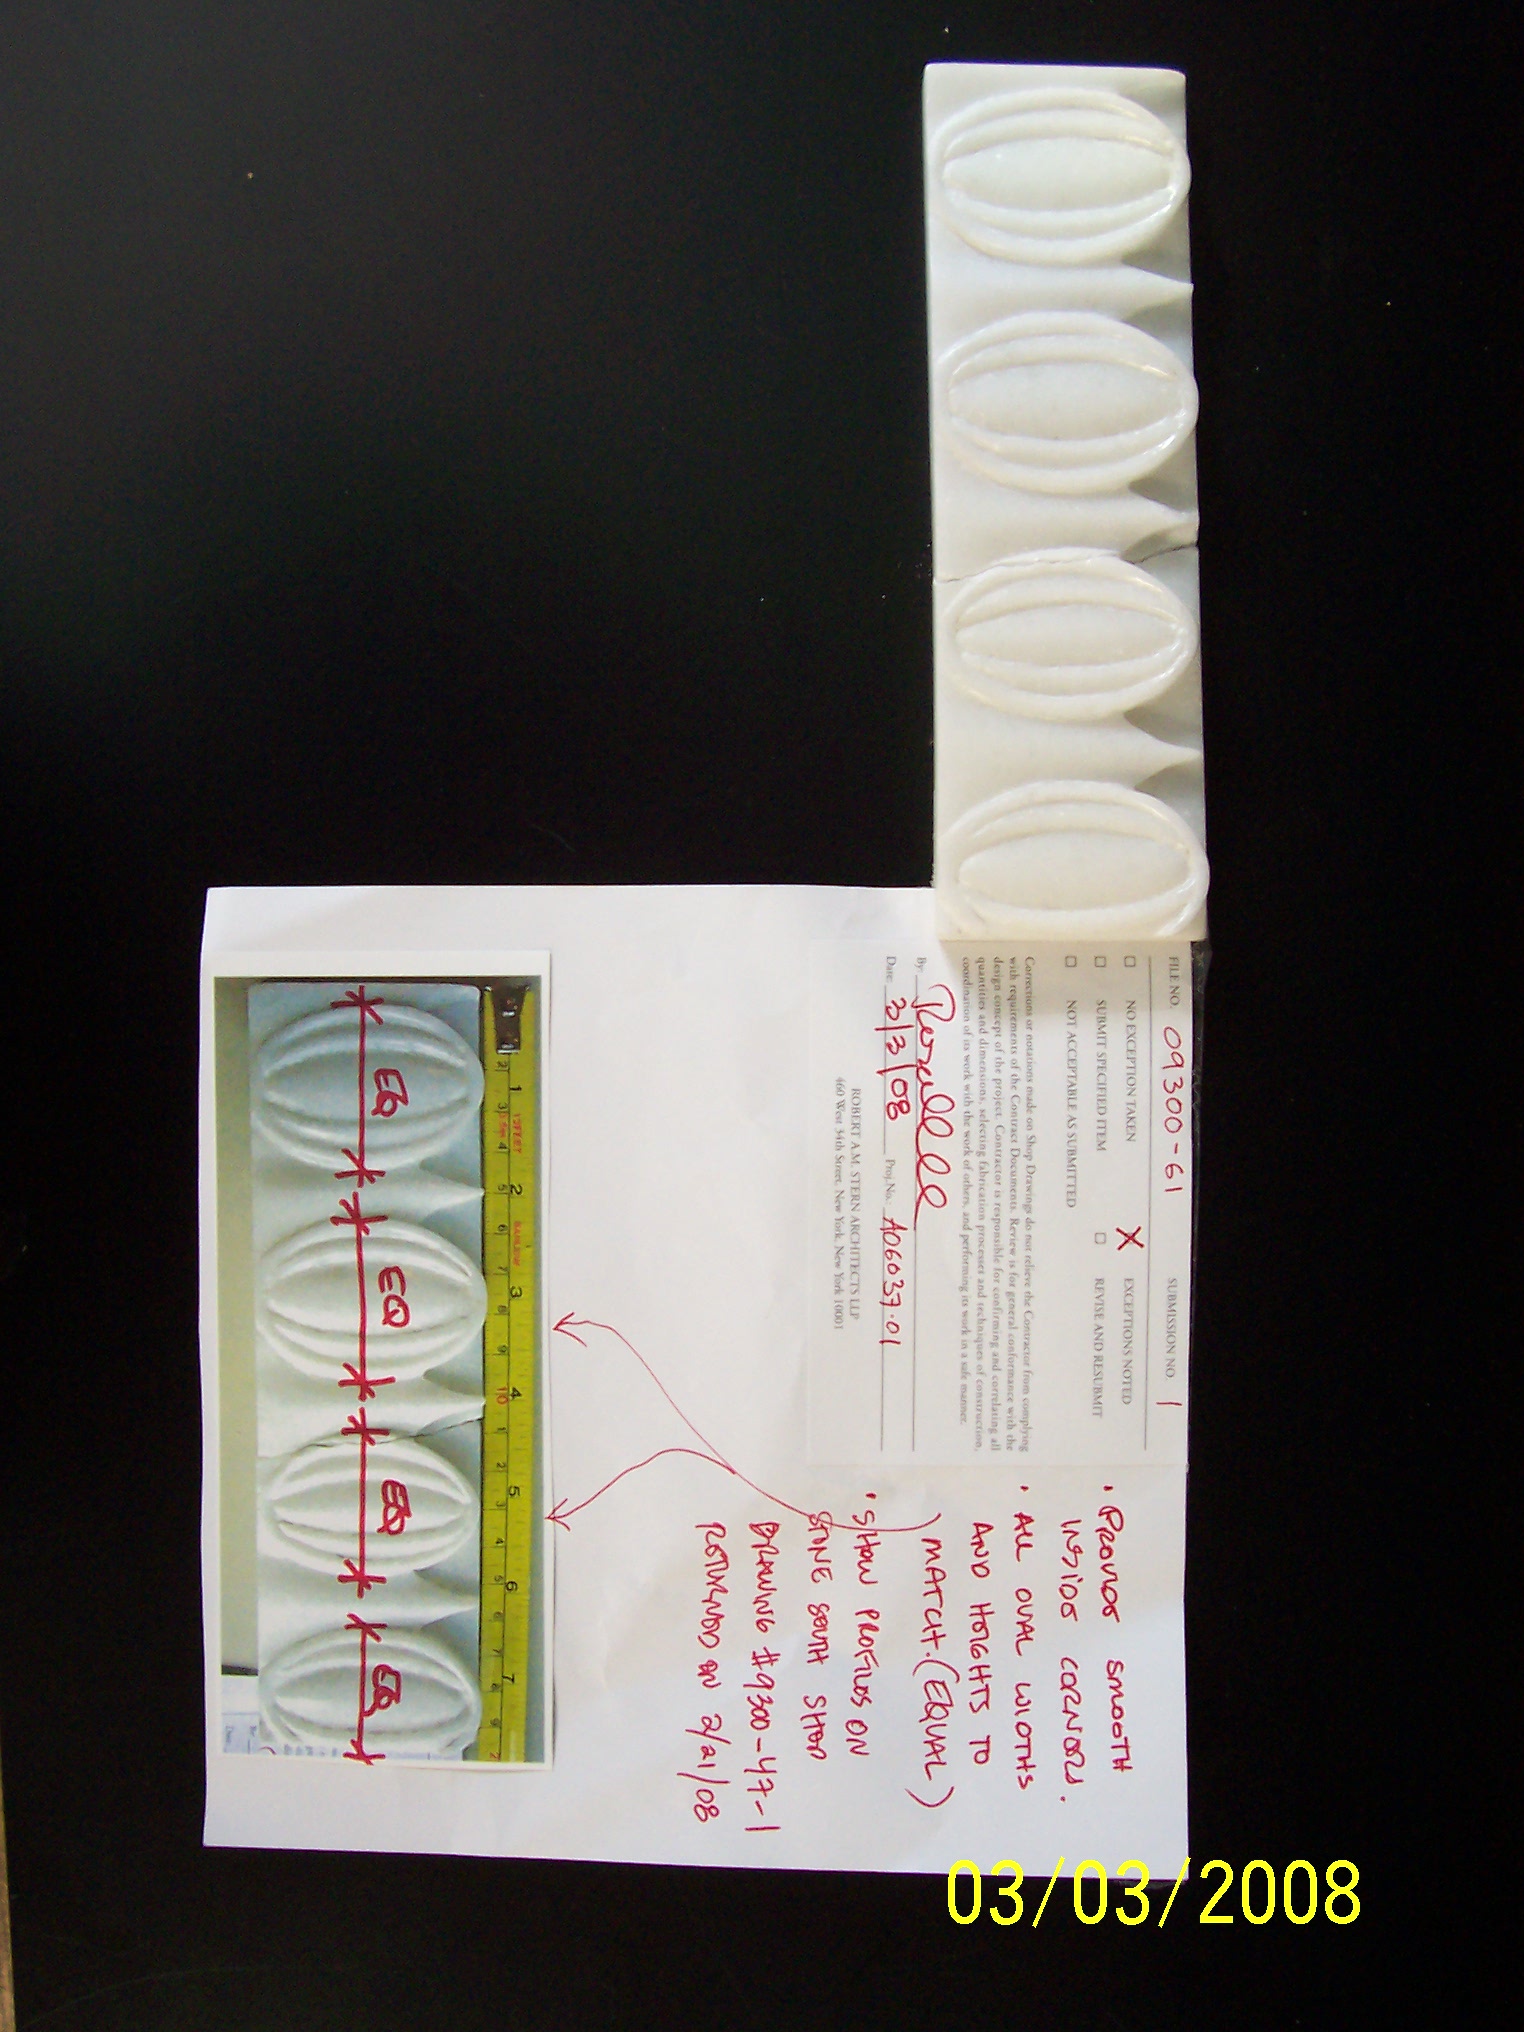 FILE NO. 09300-61 SUBMISSION NO. 1
☐ NO EXCEPTION TAKEN X EXCEPTIONS NOTED
☐ SUBMIT SPECIFIED ITEM ☐ REVISE AND RESUBMIT
☐ NOT ACCEPTABLE AS SUBMITTED
Corrections or notations made on Shop Drawings do not relieve the Contractor from complying
with requirements of the Contract Documents. Review is for general conformance with the
design concept of the project. Contractor is responsible for confirming and correlating all
quantities and dimensions, selecting fabrication processes and techniques of construction,
coordination of its work with the work of others, and performing its work in a safe manner.
By:
Date: 3/3/08 Proj.No. A06037.01
ROBERT A.M. STERN ARCHITECTS LLP
460 West 34th Street, New York, New York 10001
• PROVIDE SMOOTH
INSIDE CORNERS.
• ALL OVAL WIDTHS
AND HEIGHTS TO
MATCH. (EQUAL)
• SHOW PROFILES ON
STONE SOUTH SHOP
DRAWING #9300-47-1
RETURNED ON 2/21/08
1 2 3 4 5 6 7
2 3 4 5 6 7 8 9 10 1 2 3 4 5 6 7 8 9
EQ EQ EQ EQ
03/03/2008